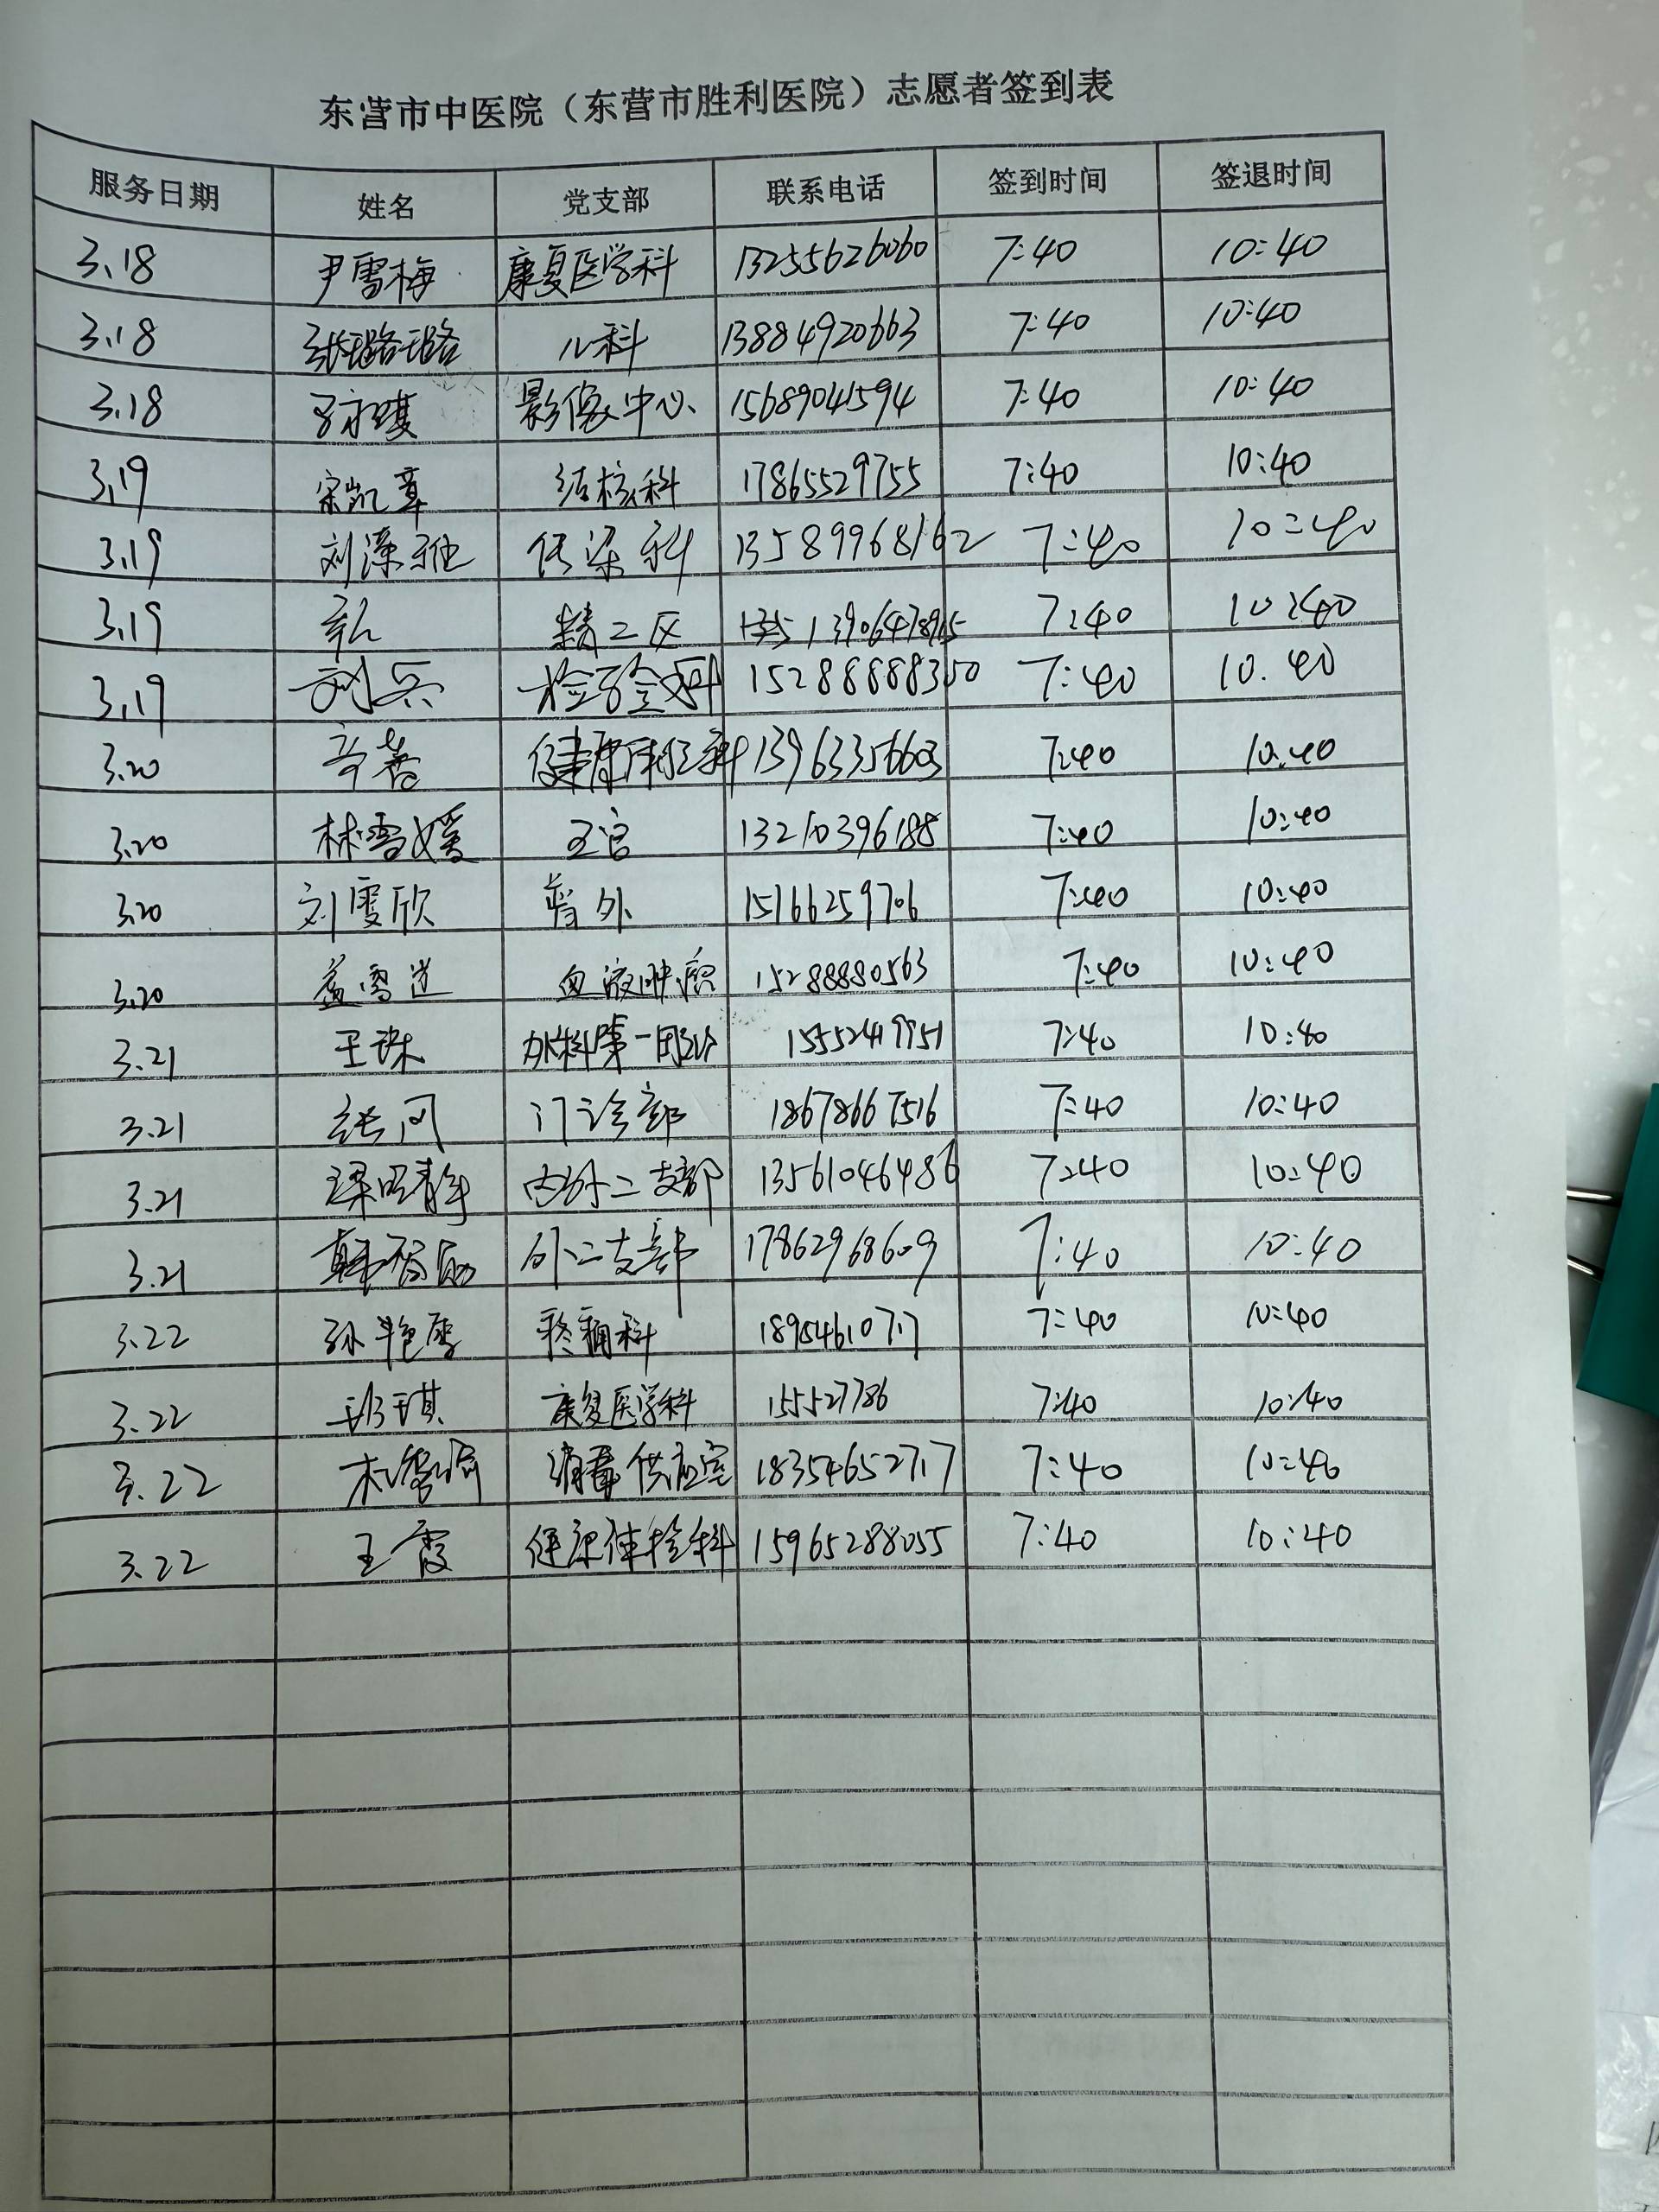 东营市中医院（东营市胜利医院）志愿者签到表
服务日期 姓名 党支部 联系电话 签到时间 签退时间
3.18 尹雪梅 康复医学科 13255626060 7:40 10:40
3.18 张璐璐 儿科 13884920663 7:40 10:40
3.18 影像中心 15689041594 7:40 10:40
3.19 宋凯章 结核科 17865529755 7:40 10:40
3.19 传染科 13589968162 7:40 10:40
3.19 精二区 7:40 10:40
3.19 刘兵 检验科 15288888350 7:40 10.40
3.20 13963356603 7:40 10:40
3.20 林雪媛 王宫 13210396188 7:40 10:40
3.20 刘雯欣 普外 15166259706 7:40 10:40
3.20 血液肿瘤 15288880563 7:40 10:40
3.21 外科第一团队 15552419951 7:40 10:40
3.21 门诊部 18678667516 7:40 10:40
3.21 二支部 13561046486 7:40 10:40
3.21 外二支部 17862968609 7:40 10:40
3.22 孙艳雪 疼痛科 18954610717 7:40 10:40
3.22 康复医学科 155527786 7:40 10:40
3.22 消毒供应室 18354652717 7:40 10:40
3.22 王霞 健康体检科 15965288055 7:40 10:40